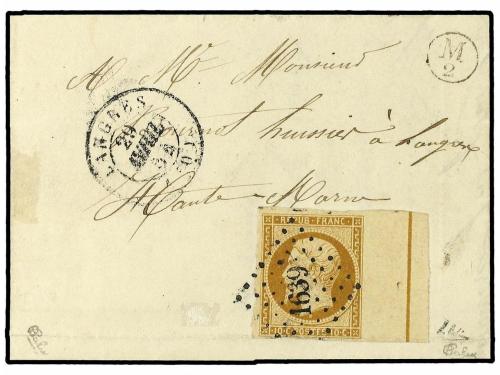 M
2
A Mr Monsieur
huissier à Langres
Haute-Marne
LANGRES
29
AVRIL
54
REPUB. FRANC.
1639
10 C. POSTES 10 C.